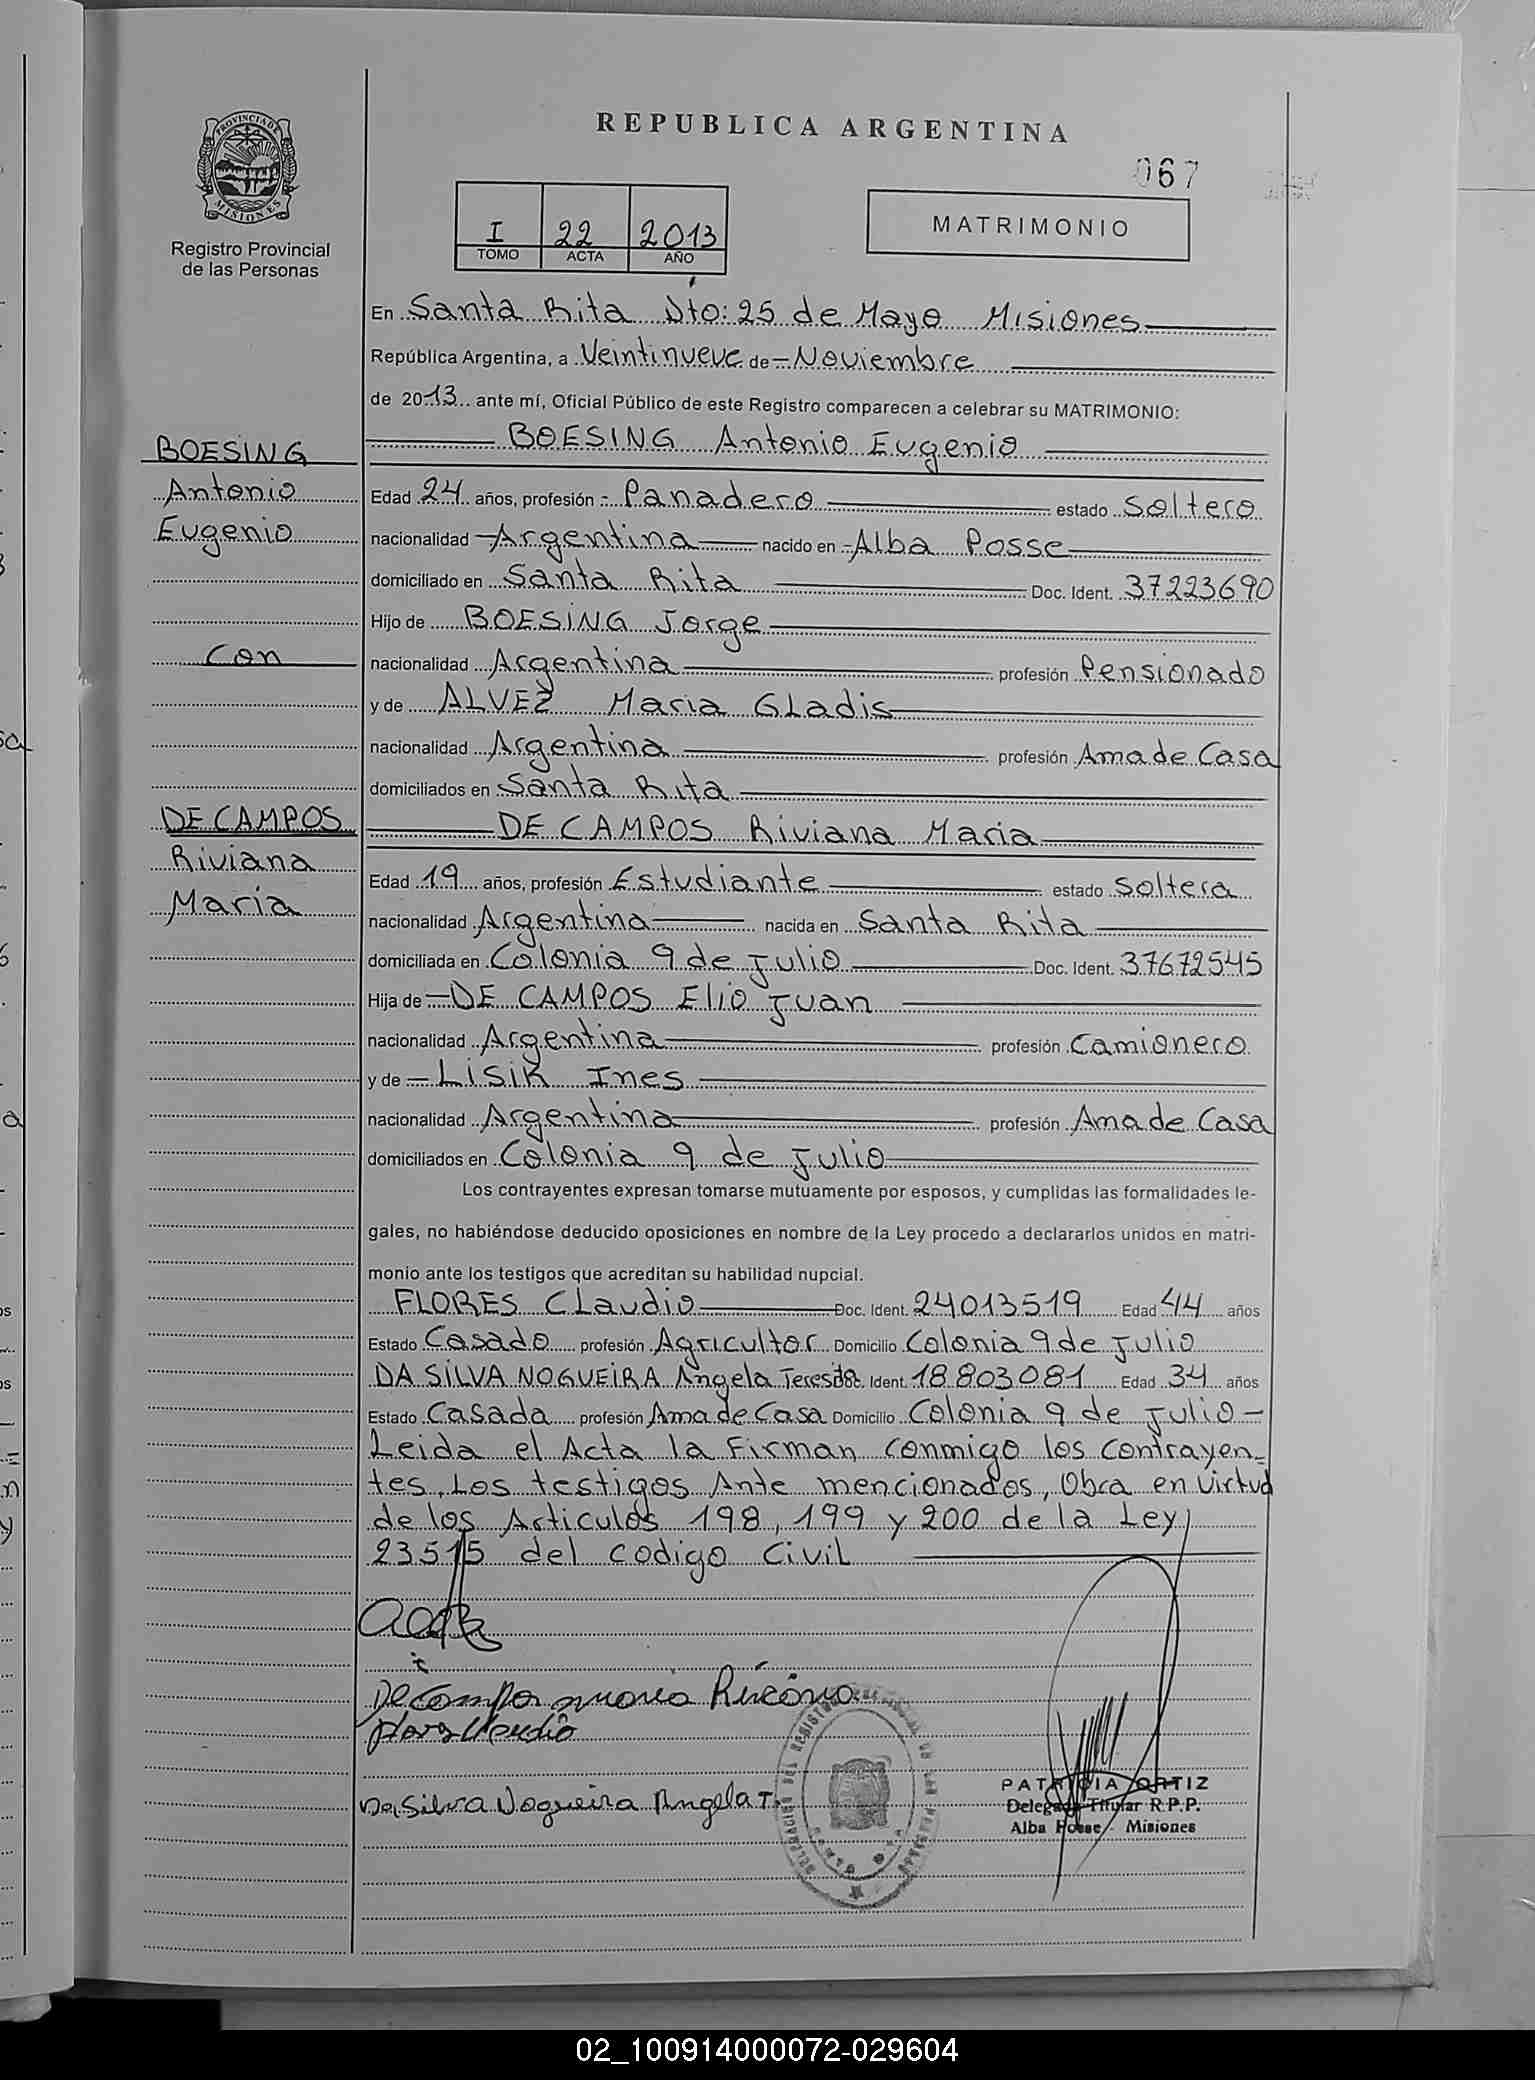 REPUBLICA ARGENTINA
067
PROVINCIA DE
MISIONES
Registro Provincial
de las Personas
I 22 2013
TOMO ACTA AÑO
MATRIMONIO
En Santa Rita Dto: 25 de Mayo Misiones
República Argentina, a Veintinueve de Noviembre
de 2013 ante mí, Oficial Público de este Registro comparecen a celebrar su MATRIMONIO:
BOESING Antonio Eugenio
BOESING
Antonio
Eugenio
Con
DE CAMPOS
Riviana
Maria
Edad 24 años, profesión Panadero estado Soltero
nacionalidad Argentina nacido en Alba Posse
domiciliado en Santa Rita Doc. Ident. 37223690
Hijo de BOESING Jorge
nacionalidad Argentina profesión Pensionado
y de ALVEZ Maria Gladis
nacionalidad Argentina profesión Ama de Casa
domiciliados en Santa Rita
DE CAMPOS Riviana Maria
Edad 19 años, profesión Estudiante estado Soltera
nacionalidad Argentina nacida en Santa Rita
domiciliada en Colonia 9 de Julio Doc. Ident. 37672545
Hija de DE CAMPOS Elio Juan
nacionalidad Argentina profesión Camionero
y de LISIK Ines
nacionalidad Argentina profesión Ama de Casa
domiciliados en Colonia 9 de Julio
Los contrayentes expresan tomarse mutuamente por esposos, y cumplidas las formalidades le-
gales, no habiéndose deducido oposiciones en nombre de la Ley procedo a declararlos unidos en matri-
monio ante los testigos que acreditan su habilidad nupcial.
FLORES Claudio Doc. Ident. 24013519 Edad 44 años
Estado Casado profesión Agricultor Domicilio Colonia 9 de Julio
DA SILVA NOGUEIRA Angela Teresa Doc. Ident. 18803081 Edad 34 años
Estado Casada profesión Ama de Casa Domicilio Colonia 9 de Julio -
Leida el Acta la Firman conmigo los contrayen-
tes, Los testigos Ante mencionados, Obra en virtud
de los Articulos 198, 199 y 200 de la Ley
23515 del codigo Civil
Da Silva Nogueira Angela T.
PATRICIA ORTIZ
Delegada Titular R.P.P.
Alba Posse / Misiones
02_100914000072-029604